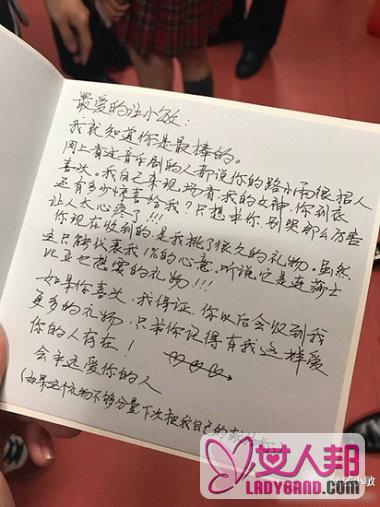 最爱的汪小敏：
我就知道你是最棒的。
网上看过音乐剧的人都说你的路小雨很招人
喜欢。我自己来现场看我的女神，你到底
还有多少惊喜给我？只想求你，别哭那么厉害
让人太心疼了!!!
你现在收到的，是我挑了很久的礼物，虽然
这只能代表我一点的心意，听说，它是连莎士
比亚也想要的礼物!!!
如果你喜欢，我保证，你以后会收到我
更多的礼物，只求你记得有我这样爱
你的人存在！
会永远爱你的人
(如果这个礼物不够分量下次把我自己的
小敏
女人邦
LADYBAND.COM